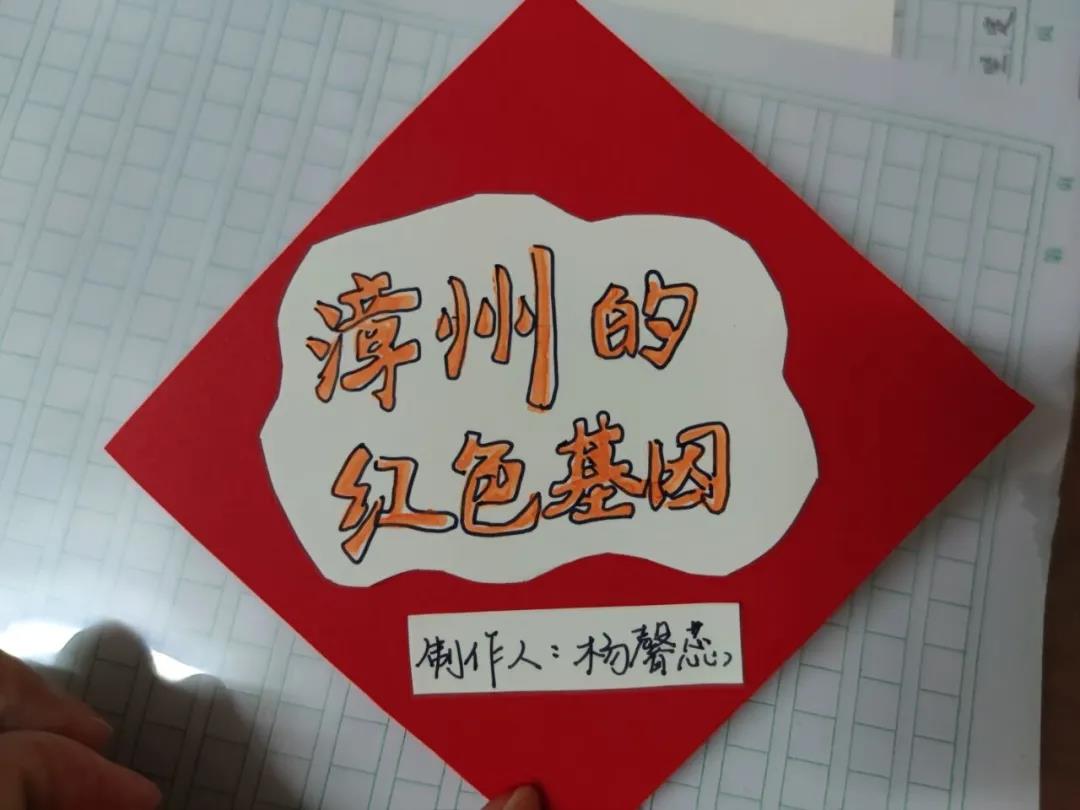 漳州的
红色基因
制作人：杨馨蕊